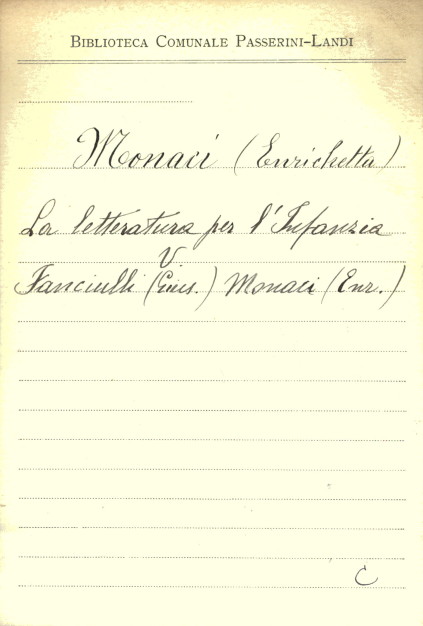 BIBLIOTECA COMUNALE PASSERINI-LANDI
Monaci (Enrichetta)
La letteratura per l'Infanzia
V.
Fanciulli (Gius.) Monaci (Enr.)
C